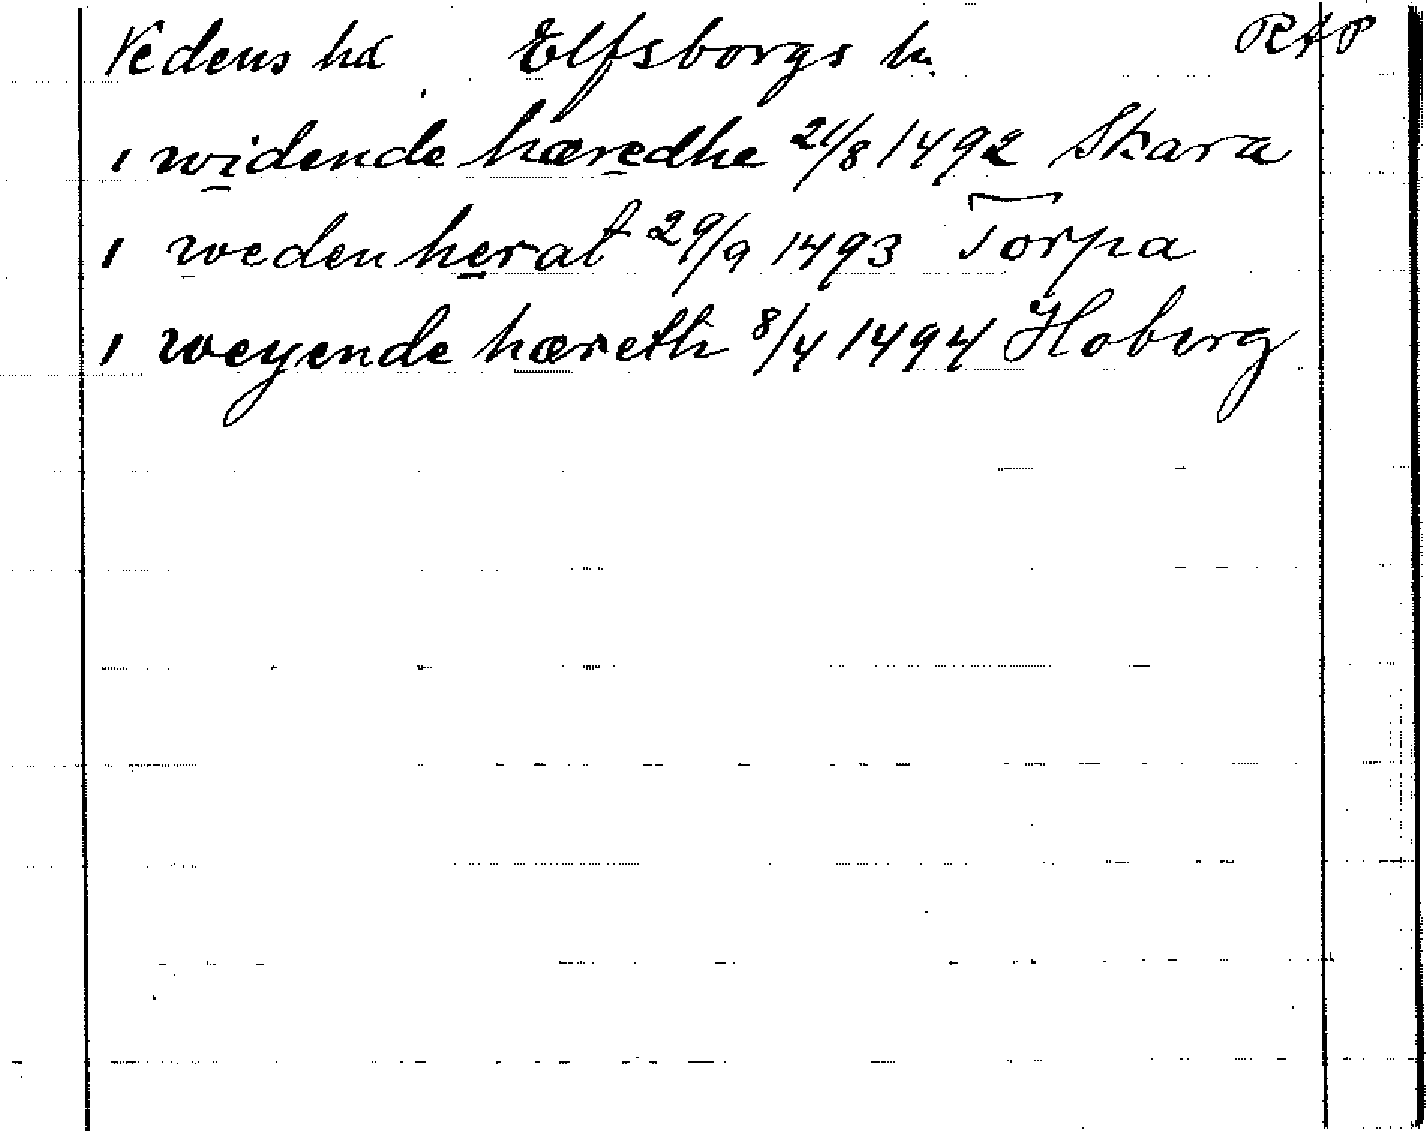 Vedens hd Elfsborgs ln. RAP
ı widende hæredhe 21/8 1492 Skara
ı wedenherat 29/9 1493 Torpa
ı weyende hæreth 8/4 1494 Hoberg